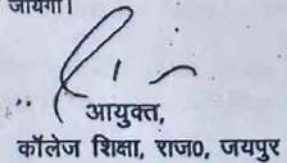 जायेगा।
आयुक्त,
कॉलेज शिक्षा, राज0, जयपुर